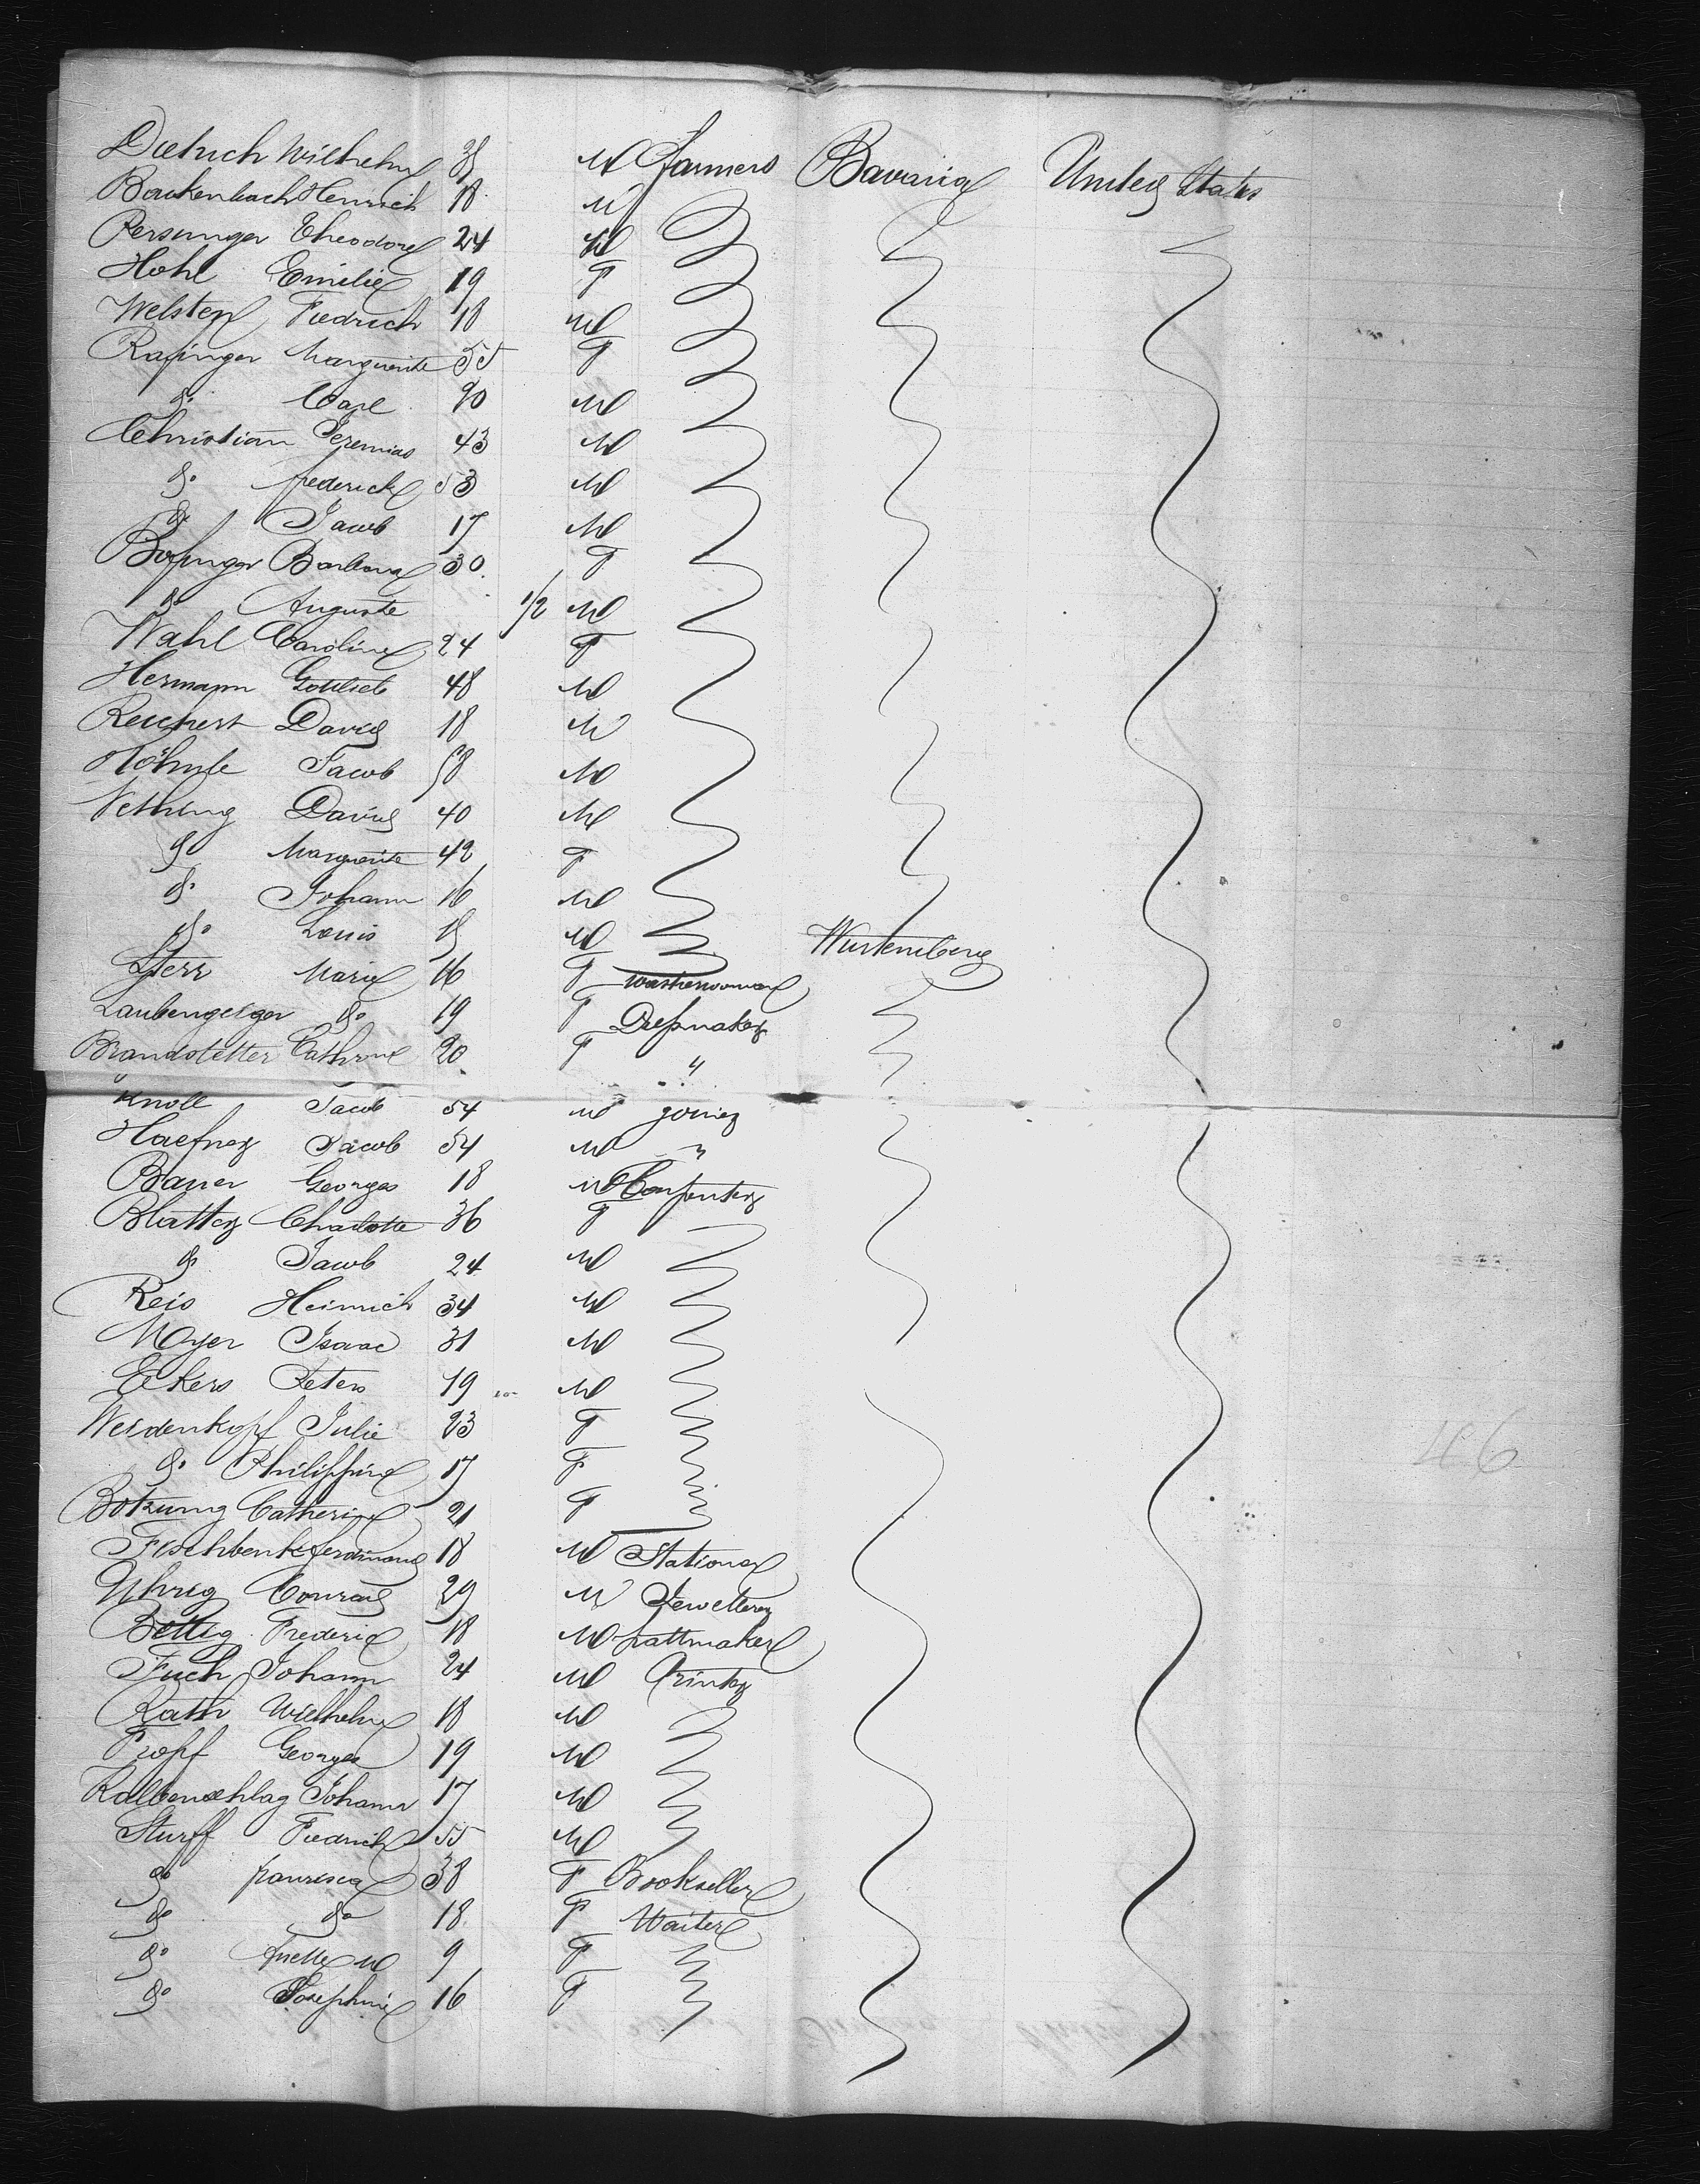 Dietrich Wilhelm M Farmers Bavaria United States
Backenbach Heinrich 18 M
Persinger Theodore 24 M
Hohl Emilie 19 F
Welsten Fredrich 18 M
Rafinger Marguerite 55 F
do Carl 20 M
Christian Jeremias 43 M
do frederick 53 M
do Jacob 17 M
Bofinger Barbara 30 F
do Auguste 1/2 M
Wahl Caroline 24 F
Hermann Gottlieb 48 M
Reichert David 18 M
Jacob 58 M
Nething David 40 M
do Marguerite 42 F
do Johann 16 M
do Louis M Wurtemberg
Marie 16 F washerwoman
Laubengeiger do 19 F Dressmaker
Brandstetter Cathrine 20 F "
Knoll Jacob 54 M joiner
Haefner Jacob 54 M "
Bauer Georges 18 M Carpenter
Blatter Charlotte 36 F
do Jacob 24 M
Reis Heinrich 34 M
Moyer Isaac 31 M
Eckers Peters 19 M
Weidenkopf Julie 23 F
do Philippine 17 F
Botzung Catherine 21 F
Fischbenk ferdinand 18 M Stationer
Uhrig Conrad 29 M Jewellerer
Bettig Frederic 18 M hattmaker
Fuch Johann 24 M Printer
Rath Wilhelm 18 M
Propf Georges 19 M
Kalbenschlag Johann 17 M
Sturff Fredrich 55 M
do fransisca 38 F Bookseller
do do 18 F Waiter
do 9 F
do Josephine 16 F